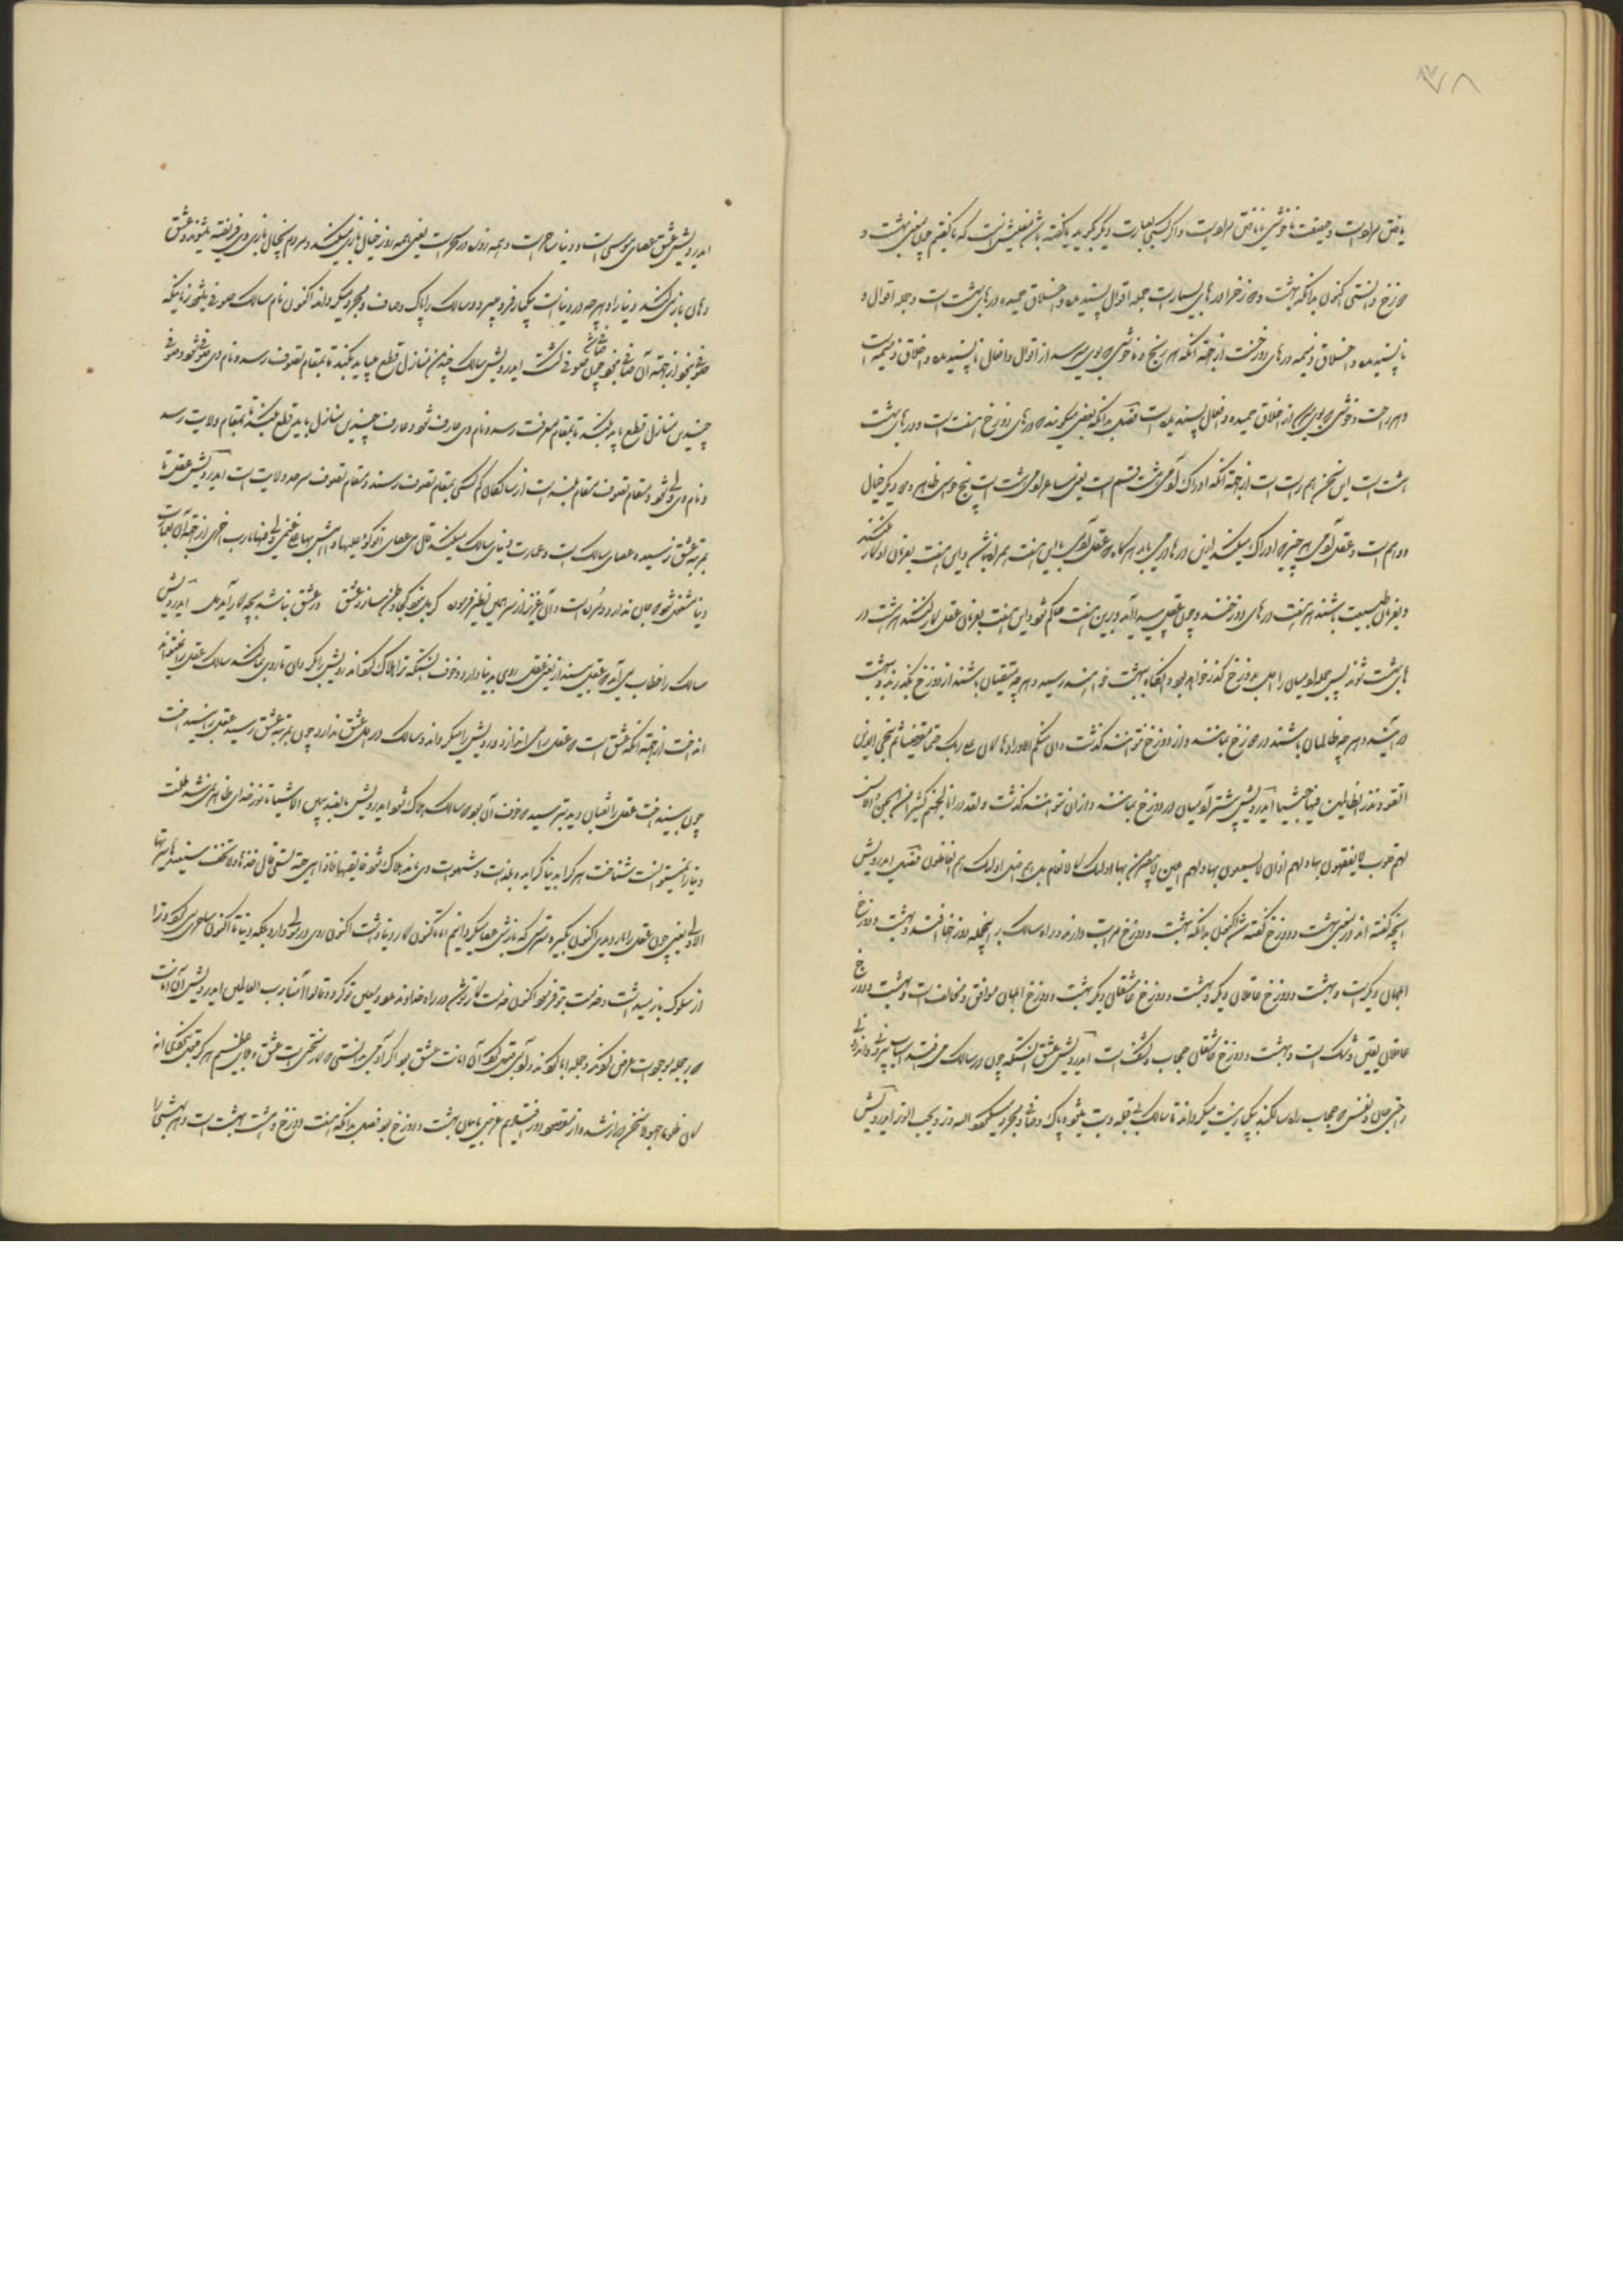 ۷۸
یافتن مراد است و حقیقت ناخوشی نایافتن مراد است و اگر کسی بعبارت دیگر گوید یا گفته باشد معنیش اینست که ما گفتیم چون معنی بهشت و
دوزخ دانستی اکنون بدانکه بهشت و دوزخ را درهای بسیارست جمله اقوال پسندیده و اخلاق حمیده درهای بهشت است و جمله اقوال و
ناپسندیده و اخلاق ذمیمه درهای دوزخست از جهت آنکه هر رنج و ناخوشی که بوی میرسد از اقوال و افعال ناپسندیده و اخلاق ذمیمه است
و هر راحت و خوشی که بوی میرسد از اخلاق حمیده و افعال پسندیده است فصل بدانکه بعضی میگویند که درهای دوزخ هفت است و درهای بهشت
هشت است این سخن هم راست است از جهت آنکه ادراک آدمی هشت قسم است یعنی مشاعر آدمی هشت است پنج حواس ظاهر و دیگر خیال
و وهم است و عقل آدمی هر چیزی که ادراک میکند ازین درها درمی‌یابد هرگاه که عقل آدمی با این هفت همراه نباشد و این هفت بفرمان او کار نکنند
و بفرمان طبیعت باشند هر هفت درهای دوزخند و چون عقل پیدا آید و برین هفت حاکم شود و این هفت بفرمان عقل کار کنند هر هشت در
های بهشت شوند پس جمله آدمیان را اول بدوزخ گذر خواهد بود و آنگاه ببهشت خواهند رسید و هر چه متقیان باشند از دوزخ بگذرند و ببهشت
در آیند و هر چه ظالمان باشند در دوزخ بمانند و از دوزخ نتوانند گذشت و ان منکم الا واردها کان علی ربک حتما مقضیا ثم ننجی الذین
اتقوا و نذر الظالمین فیها جثیا ایدرویش بیشتر آدمیان در دوزخ بمانند و از آن نتوانند گذشت و لقد ذرانا لجهنم کثیرا من الجن و الانس
لهم قلوب لا یفقهون بها و لهم اذان لا یسمعون بها و لهم اعین لا یبصرون بها اولئک کالانعام بل هم اضل اولئک هم الغافلون فصل ایدرویش
آنچه گفته اند در معنی بهشت و دوزخ گفته شد اکنون بدانکه بهشت و دوزخ مراتب دارند و در راه سالک بر اینجمله دوزخها افتد و بهشت و دوزخ
ابلهان دیگرست و بهشت و دوزخ عاقلان دیگر و بهشت و دوزخ عاشقان دیگر بهشت و دوزخ ابلهان موافق و مخالفست و بهشت و دوزخ
عاقلان یقین و شک است و بهشت و دوزخ عاشقان حجاب و کشفست ایدرویش عشق آتشیست که چون در سالک می‌افتد اسباب بیرونی و اندرونی
را چنان و نفس که حجاب راه سالکند بیکبار نیست میگرداند تا سالک بی قبله و بت میشود و پاک و صافی و مجرد میگردد الله وتر و یحب الوتر ایدرویش
ایدرویش عشق عصای موسی است و دنیا ساحرست و همه روز در سحر است یعنی همه روز خیال بازی میکند و مردم بخیال بازی وی فریفته میشوند و عشق
دهان باز میکند و دنیا را و هر چه در دنیاست بیکبار فرو میبرد و سالک را پاک و صاف و مجرد میگرداند اکنون نام سالک صوفی میشود تا نیکه
صوفی نشود از جهت آن صافی نشود چون صافی شد صوفی گشت ایدرویش سالک چندین منازل قطع میباید بکند تا بمقام تصوف رسد و نام وی صوفی شود و صوفی
چندین منازل قطع باید بکند تا بمقام معرفت رسد و نام وی عارف شود و عارف چندین منازل باید قطع بکند تا بمقام ولایت رسد
و نام وی ولی شود و مقام تصوف مقام بلندست از سالکان کم کسی بمقام تصوف رسند و مقام تصوف سرحد ولایت است ایدرویش عقل تا
بمرتبه عشق نرسیده عصای سالک است و عمارت دنیای سالک میکند قال هی عصای اتوکؤ علیها و اهش بها علی غنمی ولی فیها مارب اخری از جهت آن بعمارت
دنیا مشغول شود که جان ندارد و مرده است و آن عزیز از سر همین نظر فرموده گر بلی نخود کجا وطن سازد عشق ور عشق نباشد بچه کار آید دل ایدرویش
سالک را خطاب می‌آید که عقل بینداز یعنی عقل روی بدنیا دارد و خوف آنستکه ترا هلاک کند اندرویش را بگردان تا روی بما کند سالک عقل را نمیتواند
انداخت از جهت آنکه عشق است که عقل را می اندازد و روی عقل را میگرداند و سالک در اول عشق ندارد چون بمرتبه عشق رسید عقل را بینداخت
چون بینداخت عقل را ثعبان دید بترسید و خوف آن بود که سالک هلاک شود ایدرویش بالضد یتبین الاشیا تا نور خدای ظاهر نشد ظلمت
دنیا را نمیتوانست شناخت هرگز اید بینا گر اید و بلذات و شهوات وی ماند هلاک شود فالقیها فاذا هی حیة تسعی قال خذها و لا تخف سنعیدها سیرتها
الاولی یعنی چون عقل را مار دیدی اکنون بگیر و مترس که بازش عصا میگردانیم اما تا کنون کار دنیا داشت اکنون روی در مولی دارد بلکه دنیا تا اکنون ساحری میکرد و ترا
از سلوک باز میداشت و خدمت بتو فرمود اکنون خدمت کار تو شد در راه خدا و بدعاو یعیین تو گردد و قالوا آمنا برب العالمین ایدرویش آن امانت
که بر جمله موجودات عرض کردند و جمله ابا کردند و آدمی قبول کرد آن امانت عشق بود اگر آدمی دانستی که کار سختست عشق و بلای عظیم هرگز قبول نکردی انه
کان ظلوما جهولا سخن دراز شد و از مقصود دور افتادیم غرض بیان بهشت و دوزخ بود فصل بدانکه هفت دوزخ و هشت بهشت است و هر بهشتی را